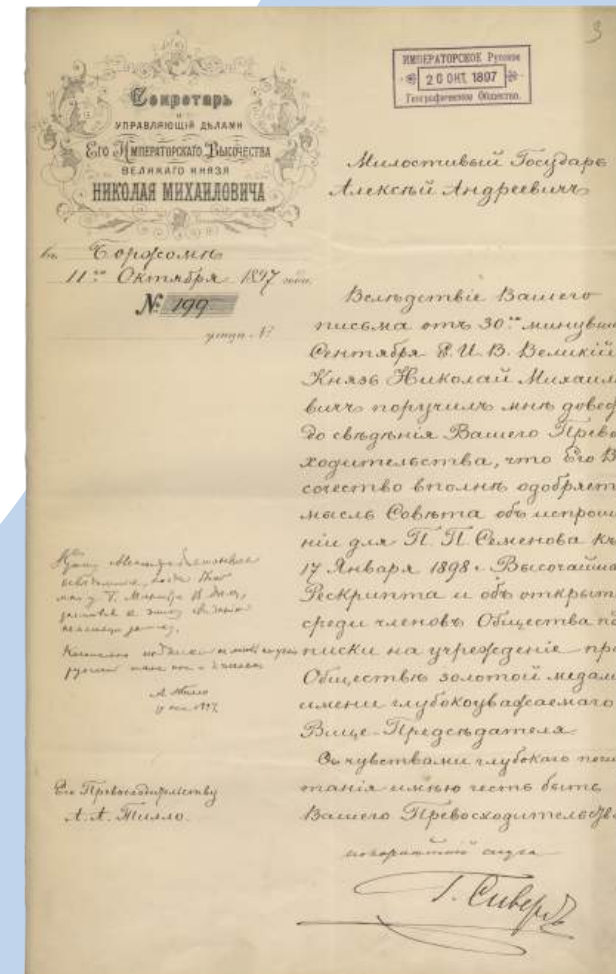 3
ИМПЕРАТОРСКОЕ Русское
20 ОКТ. 1897
Географическое Общество.
Секретарь
и
УПРАВЛЯЮЩІЙ ДѢЛАМИ
ЕГО ИМПЕРАТОРСКАГО ВЫСОЧЕСТВА
ВЕЛИКАГО КНЯЗЯ
НИКОЛАЯ МИХАИЛОВИЧА
въ Боржомѣ
11го Октября 1897 года.
№ 199
Милостивый Государь
Алексѣй Андреевичъ
Вслѣдствіе Вашего
письма отъ 30го минувш
Сентября Е. И. В. Великій
Князь Николай Михаил
вичъ поручилъ мнѣ довес
до свѣдѣнія Вашего Прево
ходительства, что Его В
сочество вполнѣ одобряет
мысль Совѣта объ испрош
ніи для П. П. Семенова къ
17 Января 1898 г. Высочайша
Рескрипта и объ открыт
среди членовъ Общества по
писки на учрежденіе пр
Обществѣ золотой медал
имени глубокоуважаемаго
Вице-Предсѣдателя.
Съ чувствами глубокаго почи
танія имѣю честь быть
Вашего Превосходительства
покорнѣйшій слуга
Г. Сиверсъ
А. Тилло
1897
Его Превосходительству
А. А. Тилло.